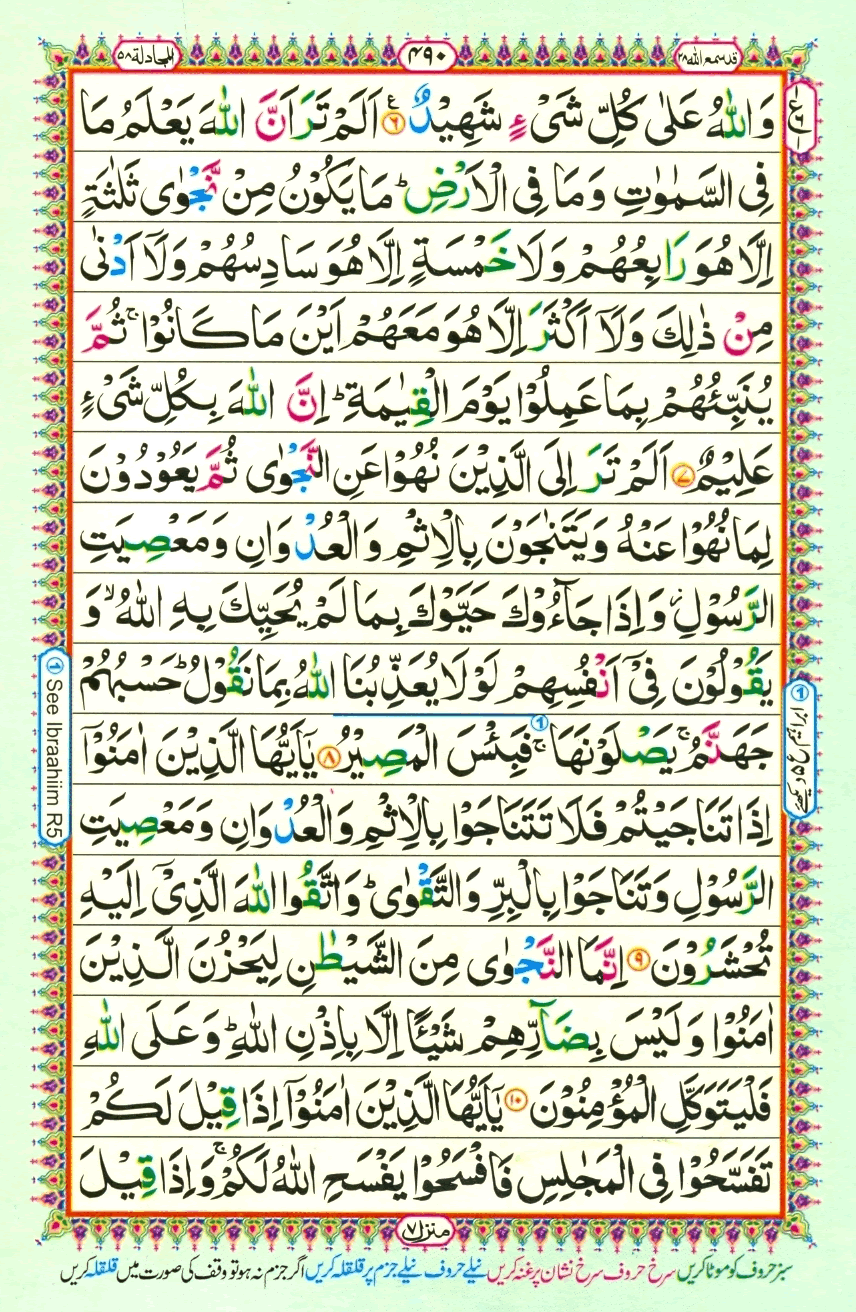 المجادلة ۵۸
۴۹۰
قد سمع الله ۲۸
وَاللّٰهُ عَلٰى كُلِّ شَىْءٍ شَهِيْدٌ ۶ اَلَمْ تَرَ اَنَّ اللّٰهَ يَعْلَمُ مَا
فِى السَّمٰوٰتِ وَ مَا فِى الْاَرْضِ ؕ مَا يَكُوْنُ مِنْ نَّجْوٰى ثَلٰثَةٍ
اِلَّا هُوَ رَابِعُهُمْ وَلَا خَمْسَةٍ اِلَّا هُوَ سَادِسُهُمْ وَلَاۤ اَدْنٰى
مِنْ ذٰلِكَ وَلَاۤ اَكْثَرَ اِلَّا هُوَ مَعَهُمْ اَيْنَ مَا كَانُوْا ۚ ثُمَّ
يُنَبِّئُهُمْ بِمَا عَمِلُوْا يَوْمَ الْقِيٰمَةِ ؕ اِنَّ اللّٰهَ بِكُلِّ شَىْءٍ
عَلِيْمٌ ۷ اَلَمْ تَرَ اِلَى الَّذِيْنَ نُهُوْا عَنِ النَّجْوٰى ثُمَّ يَعُوْدُوْنَ
لِمَا نُهُوْا عَنْهُ وَيَتَنٰجَوْنَ بِالْاِثْمِ وَالْعُدْوَانِ وَمَعْصِيَتِ
الرَّسُوْلِ ز وَاِذَا جَآءُوْكَ حَيَّوْكَ بِمَا لَمْ يُحَيِّكَ بِهِ اللّٰهُ ۙ وَ
يَقُوْلُوْنَ فِىْۤ اَنْفُسِهِمْ لَوْلَا يُعَذِّبُنَا اللّٰهُ بِمَا نَقُوْلُ ؕ حَسْبُهُمْ
جَهَنَّمُ ۚ يَصْلَوْنَهَا ۚ ۱ فَبِئْسَ الْمَصِيْرُ ۸ يٰۤاَيُّهَا الَّذِيْنَ اٰمَنُوْۤا
اِذَا تَنَاجَيْتُمْ فَلَا تَتَنَاجَوْا بِالْاِثْمِ وَالْعُدْوَانِ وَمَعْصِيَتِ
الرَّسُوْلِ وَتَنَاجَوْا بِالْبِرِّ وَالتَّقْوٰى ؕ وَاتَّقُوا اللّٰهَ الَّذِىْۤ اِلَيْهِ
تُحْشَرُوْنَ ۹ اِنَّمَا النَّجْوٰى مِنَ الشَّيْطٰنِ لِيَحْزُنَ الَّذِيْنَ
اٰمَنُوْا وَلَيْسَ بِضَآرِّهِمْ شَيْئًا اِلَّا بِاِذْنِ اللّٰهِ ؕ وَعَلَى اللّٰهِ
فَلْيَتَوَكَّلِ الْمُؤْمِنُوْنَ ۱۰ يٰۤاَيُّهَا الَّذِيْنَ اٰمَنُوْۤا اِذَا قِيْلَ لَكُمْ
تَفَسَّحُوْا فِى الْمَجٰلِسِ فَافْسَحُوْا يَفْسَحِ اللّٰهُ لَكُمْ ۚ وَاِذَا قِيْلَ
ع ۶ ۱
۱ ابراہیم ع ۵ دیکھئے
1 See Ibraahiim R5
منزل ۷
سبز حروف کو موٹا کریں سرخ حروف سرخ نشان پر غنہ کریں نیلے حروف نیلے جزم پر قلقلہ کریں اگر جزم نہ ہو تو وقف کی صورت میں قلقلہ کریں